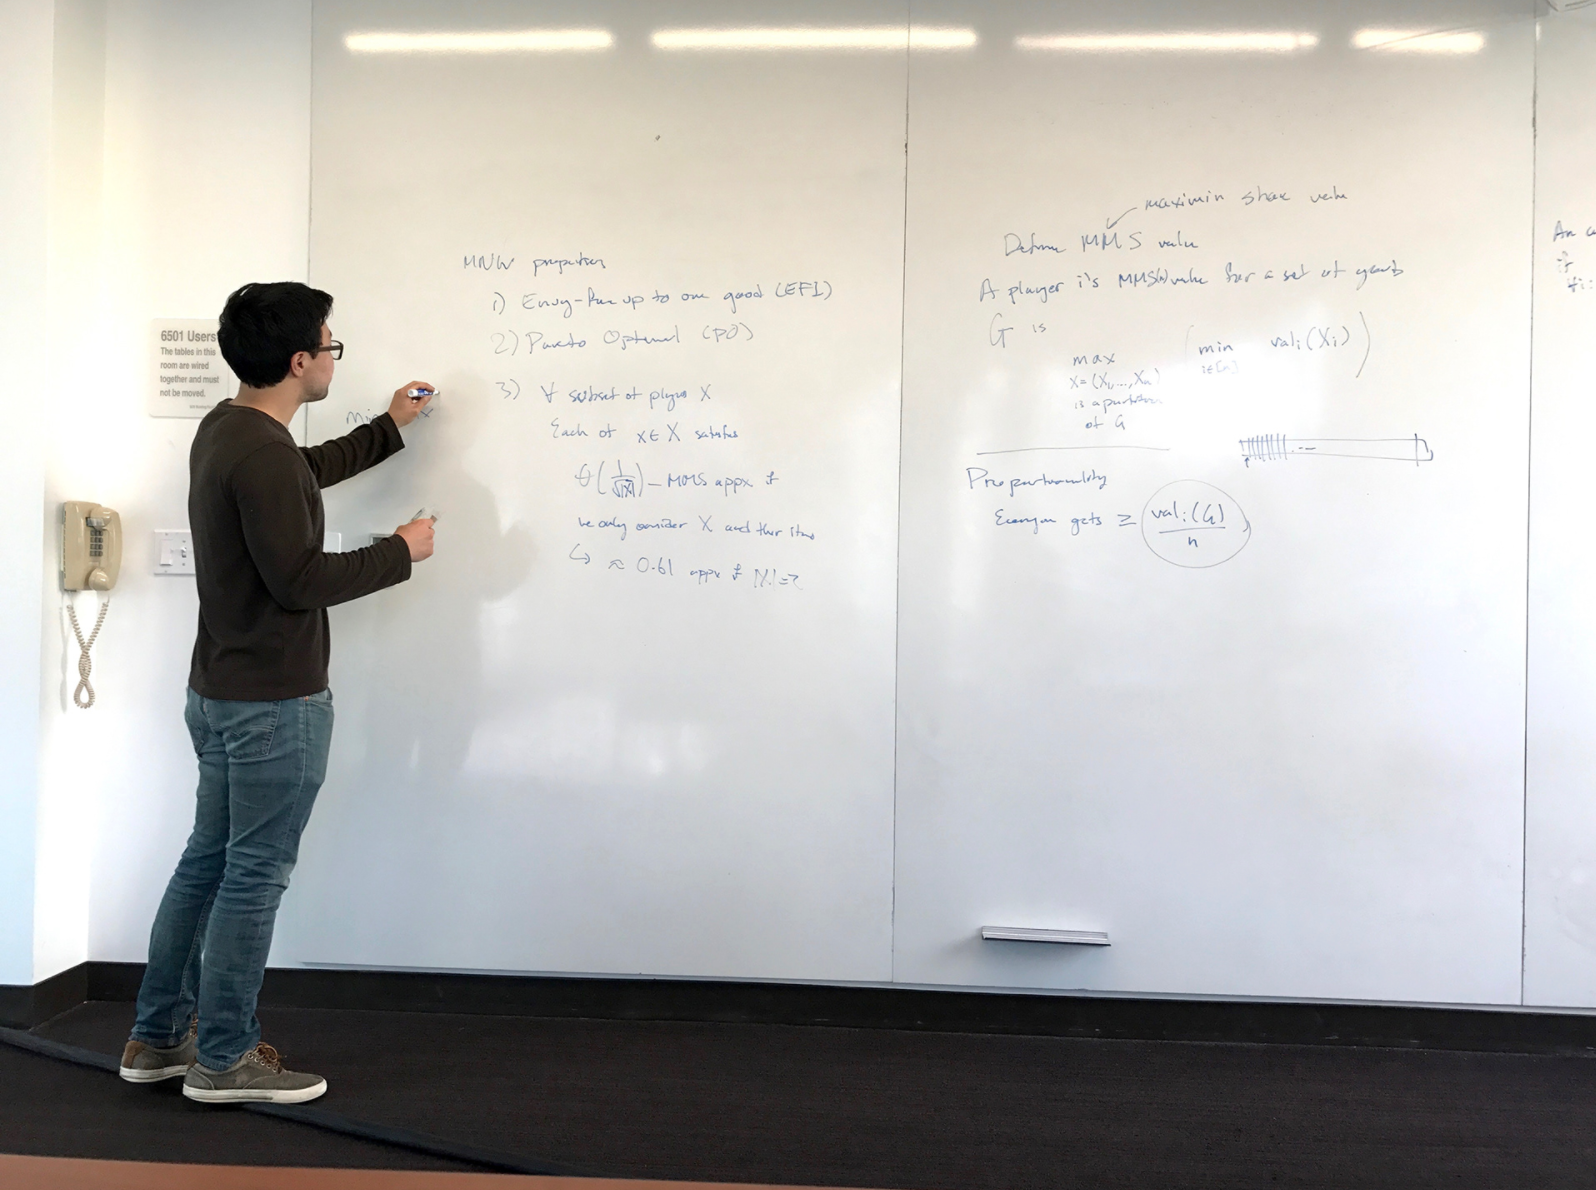 6501 Users
The tables in this
room are wired
together and must
not be moved.
MNW properties
1) Envy-free up to one good (EF1)
2) Pareto Optimal (PO)
3) ∀ subset of players X
Each of x∈X satisfies
Θ(1/√|X|)-MMS appx if
we only consider X and their items
↳ ≈ 0.61 appx if |X|=2
maximin share value
Define MMS value
A player i's MMS value for a set of goods
G is
max ( min val_i(X_i) )
X=(X_1,...,X_n) i∈[n]
is a partition
of G
Proportionality
Everyone gets ≥ val_i(G)/n
if
∀i: